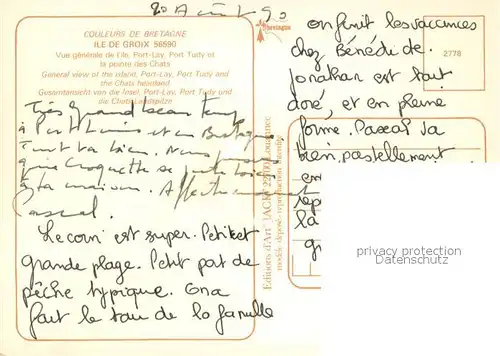 20 Août 90
COULEURS DE BRETAGNE
ILE DE GROIX 56590
Vue générale de l'île, Port-Lay, Port Tudy et
la pointe des Chats
General view of the island, Port-Lay, Port Tudy and
the Chats headland.
Gesamtansicht von die Insel, Port-Lay, Port Tudy und
die Chats Landspitze
Très grand beau temps
à Port Louis et en Bretagne
Tout va bien. Nous
que Croquette se porte bien
à la maison. Affectueusement
Pascal.
Le coin est super. Petite et
grande plage. Petit port de
pêche typique. On a
fait le tour de la famille
Bretagne
2778
on finit les vacances
chez Bénédicte.
Jonathan est tout
doré, et en pleine
forme. Pascal va
bien, pastellement
Editions d'Art JACK
modèle déposé - reproduction interdite
privacy protection
Datenschutz